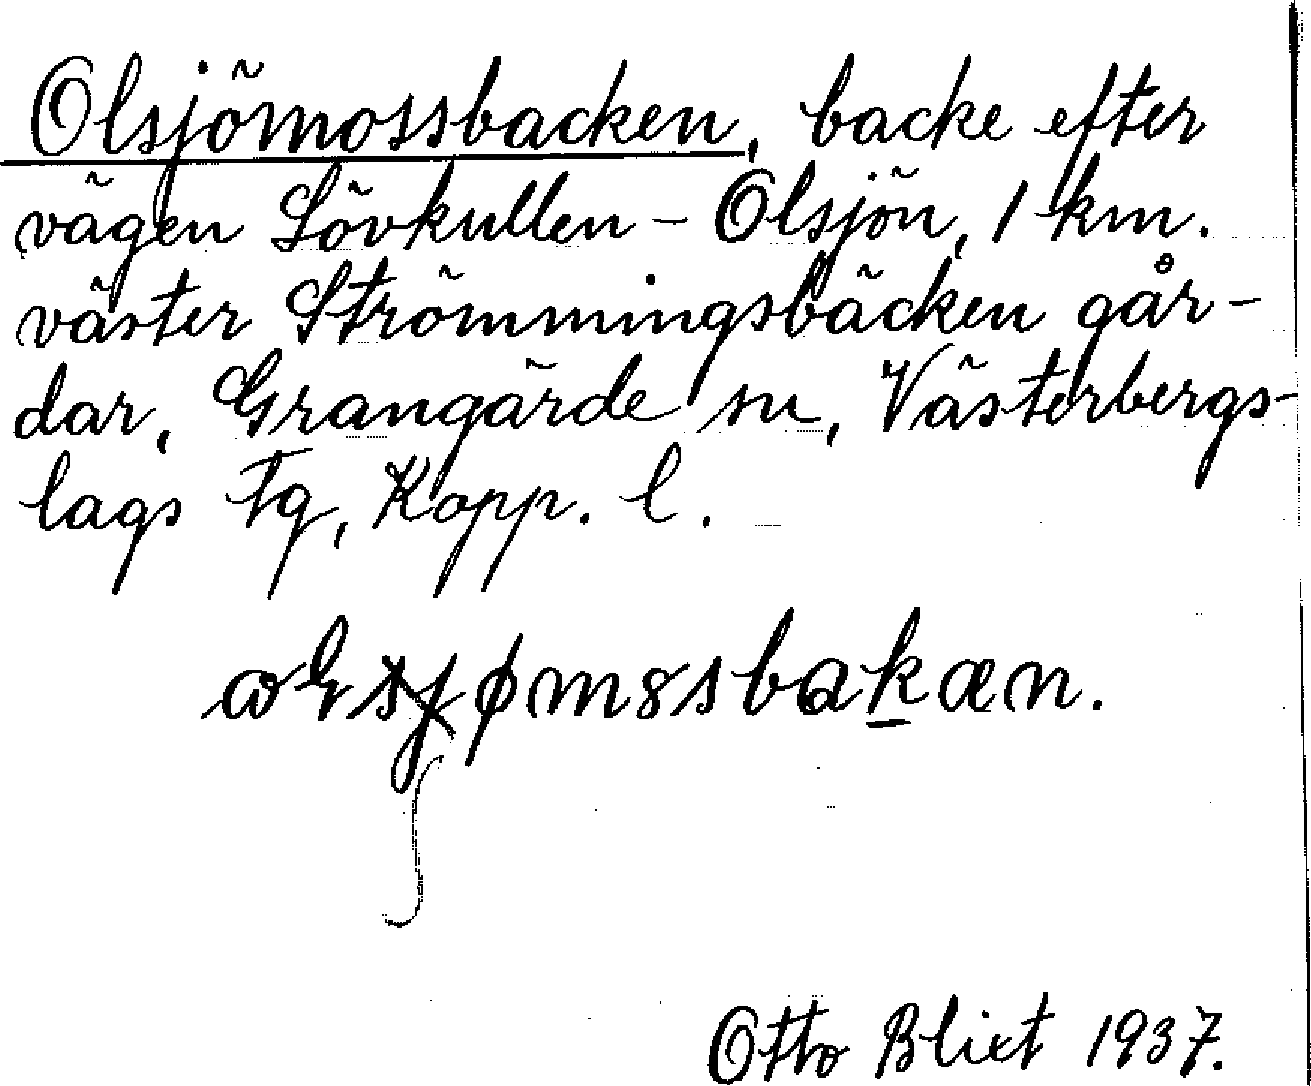 Olsjömossbacken, backe efter
vägen Lövkullen – Olsjön, 1 km.
väster Strömmingsbäcken går-
dar, Grangärde sn, Västerbergs-
lags Tg, Kopp. l.
Otto Blixt 1937.